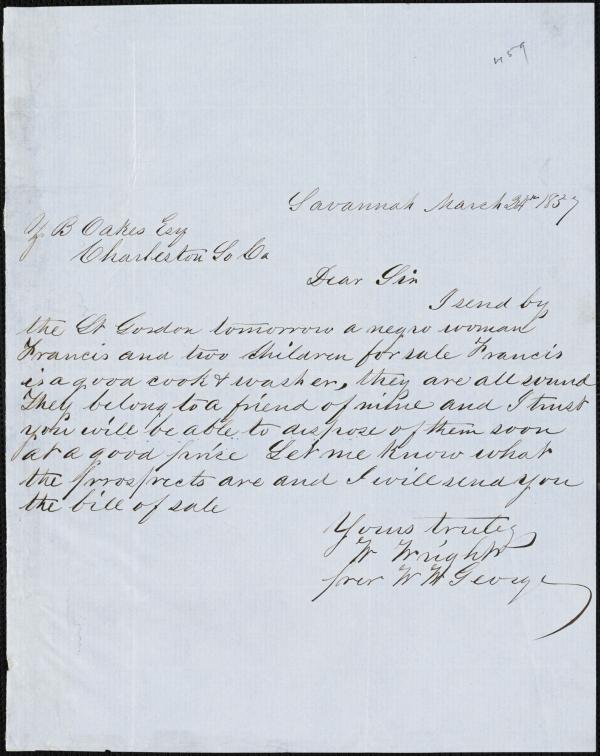 459
Savannah March 24th 1857
Z B Oakes Esq
Charleston So Ca
Dear Sir
I send by
the St Gordon tomorrow a negro woman
Francis and two children for sale Francis
is a good cook & washer, they are all sound
They belong to a friend of mine and I trust
you will be able to dispose of them soon
at a good price Let me know what
the prospects are and I will send you
the bill of sale
Yours truley
W Wright
per W W George